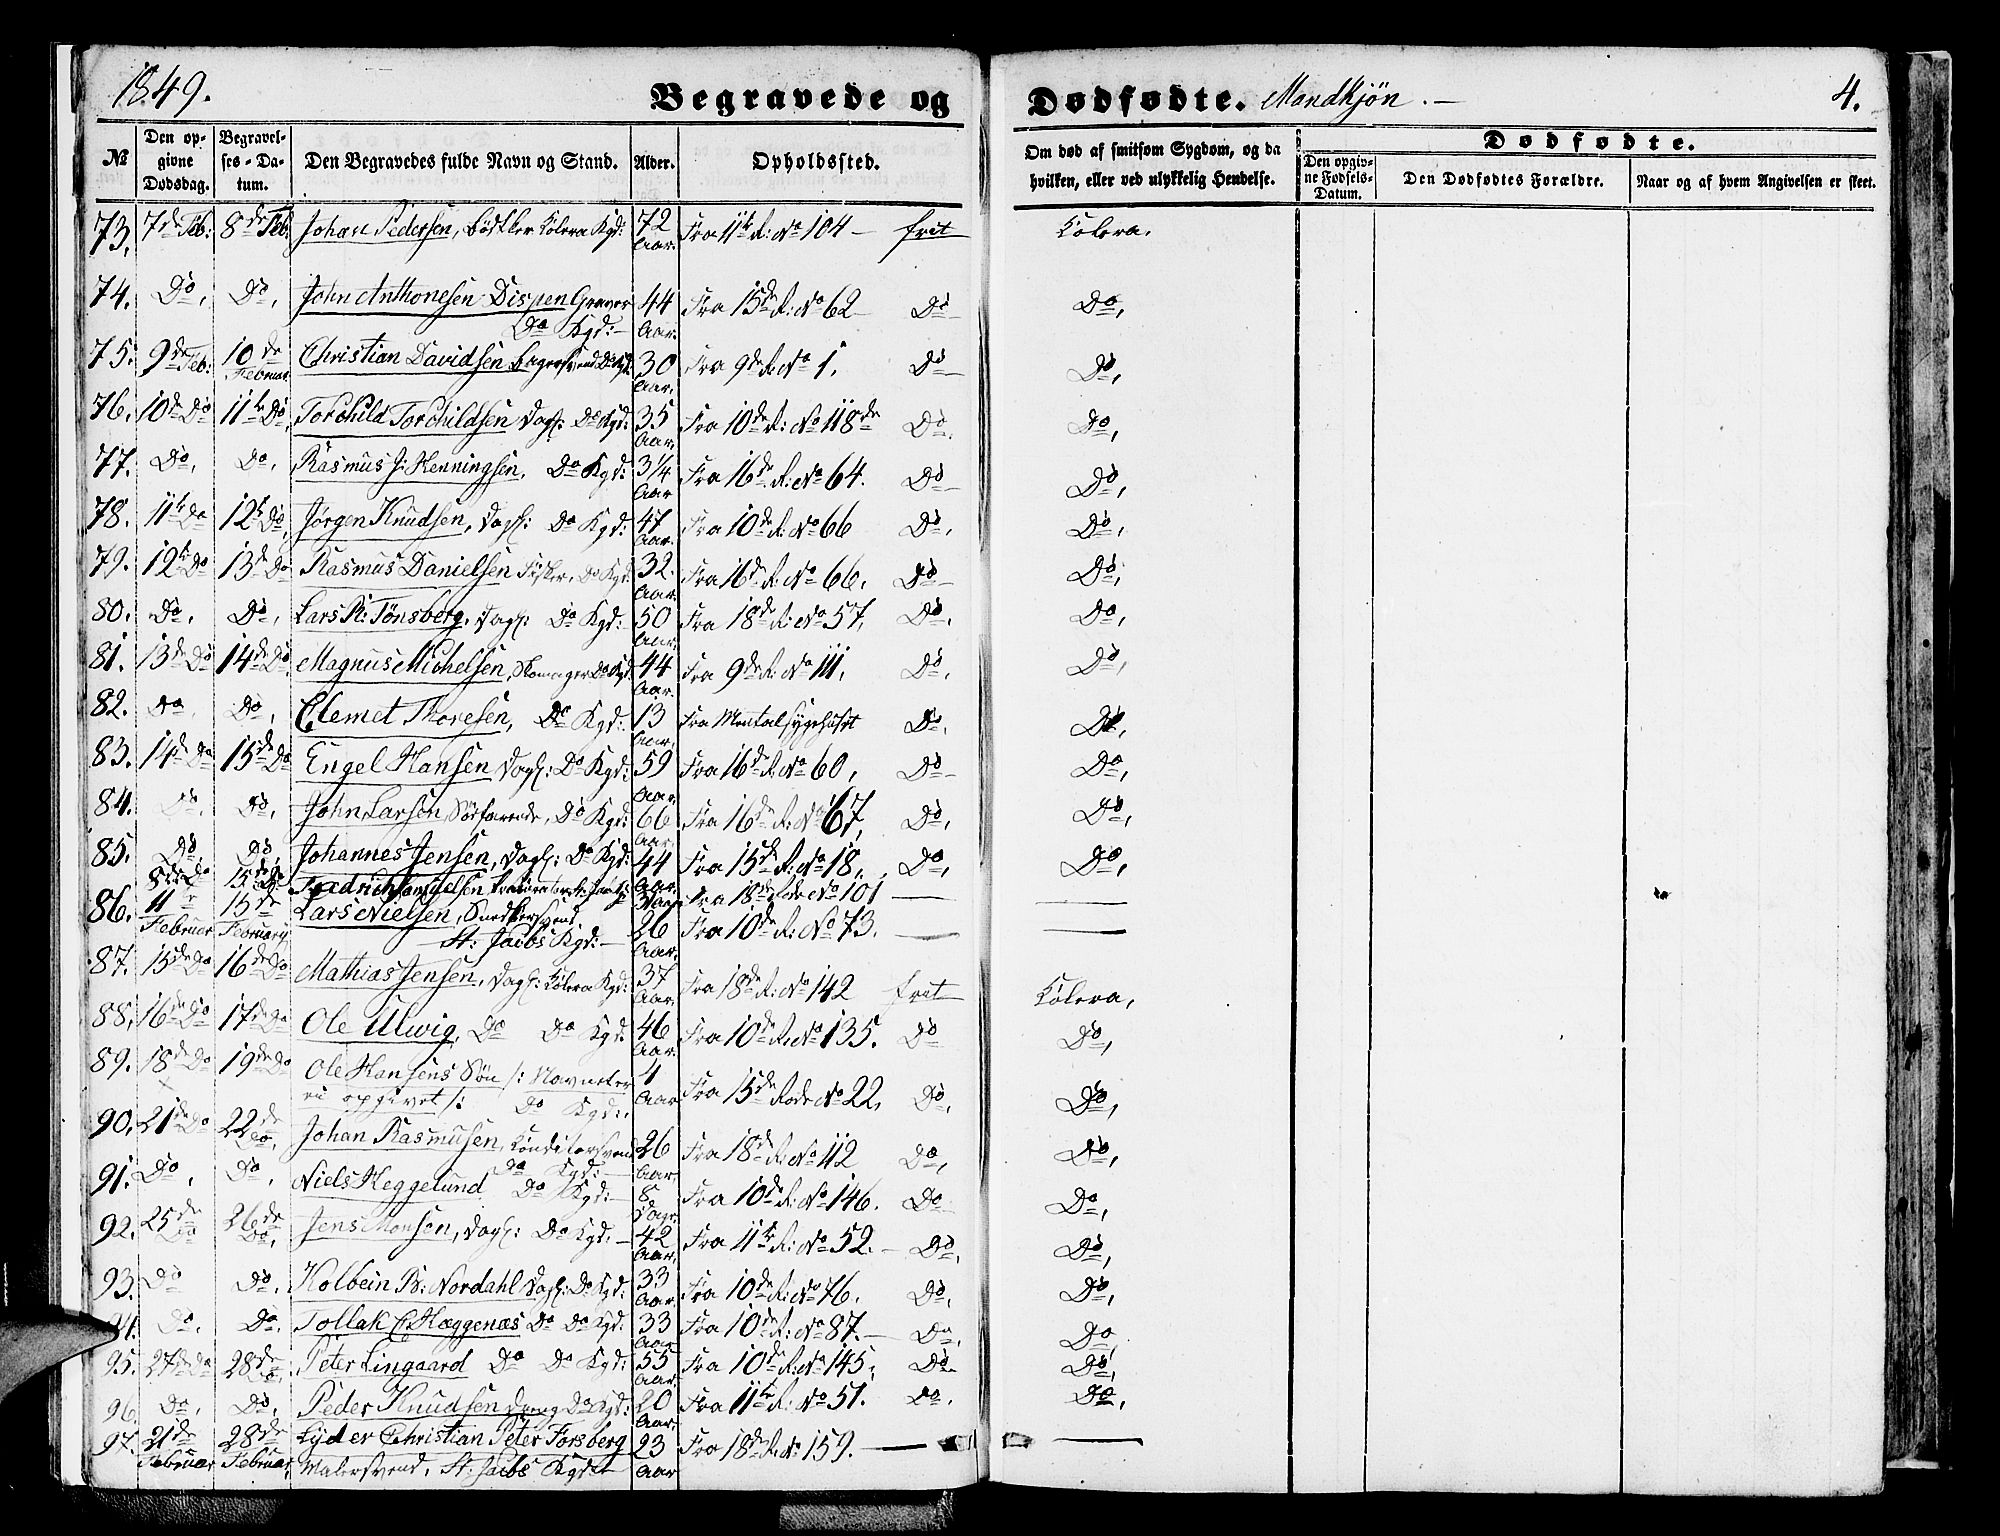 1849.
Begravede og Dødfødte. Mandkjön. —
4.
№
Den opgivne Dødsdag.
Begravelses-Datum.
Den Begravedes fulde Navn og Stand.
Alder.
Opholdssted.
Om død af smitsom Sygdom, og da hvilken, eller ved ulykkelig Hendelse.
Dødfødte.
Den opgivne Fødsels-Datum.
Den Dødfødtes Forældre.
Naar og af hvem Angivelsen er skeet.
73. 7de Feb: 8de Feb: Johan Pedersen, bödtker Kolera Kgd: 72 Aar. Fra 11te R: No 104 — frit Kolera.
74. Do, Do, John Anthonesen Dispen Graver 44 Fra 15de R: No 62 — Do — Do,
Do Kgd: — Aar.
75. 9de Feb: 10de Februar Christian Davidsen bagersvend Do Kgd 30 Aar. Fra 9de R: No 1. Do — Do,
76. 10de Do 11te Do, Torchild Torchildsen Dagl: Do Kgd: 35 Aar. Fra 10de R: No 118de Do. Do,
77. Do, Do, Rasmus J: Henningsen, Do Kgd: 3 1/4 Aar Fra 16de R: No 64. Do — Do,
78. 11te Do 12te Do, Jörgen Knudsen, Dagl: Do Kgd: 47 Aar. Fra 10de R: No 66 Do, Do,
79. 12te Do 13de Do Rasmus Danielsen Fisker, Do Kgd: 32. Aar. Fra 16de R: No 66. Do — Do,
80. Do, Do, Lars R: Tönsberg, Dagl: Do Kgd: — 50 Aar. Fra 18de R: No 57, Do, Do,
81. 13de Do 14de Do, Magnus Michelsen, Skomager Do Kgd. 44 Aar. Fra 9de R: No 111. Do, Do,
82. Do, Do, Clemet Thoresen, Do Kgd: 13 Aar. Fra Mentalsygehuset Do. Do,
83. 14de Do 15de Do Engel Hansen Dagl: Do Kgd: 59 Aar. Fra 16de R: No 60, Do — Do,
84. Do, Do, John Larsen, Söefarende, Do Kgd: 66 Aar. Fra 16de R: No 67, Do, Do,
85. Do, Do, Johannes Jensen, Dagl: Do Kgd: 44 Aar. Fra 15de R: No 18. Do, Do,
Do 15de Do Fredrich Fra 18de Rode No 101 —
86. 11te Februar 15de Februar Lars Nielsen, Snedkersvend 26 Aar. Fra 10de R: No 73. —
St: Jacobs Kgd: —
87. 15de Do 16de Do Mathias Jensen, Dagl: Kolera Kgd: 37 Aar. Fra 18de R: No 142 frit Kolera,
88. 16de Do 17de Do Ole Ulwig, Do Do Kgd: 46 Aar. Fra 10de R: No 135. Do Do,
89. 18de Do 19de Do Ole Hansens Sön /: Navnet er 4 Aar Fra 15de Rode No 22, Do, Do,
ei opgivet /: Do Kgd:,
90. 21de Do 22de Do, Johan Rasmusen, Konditersvend 26 Aar, Fra 18de R: No 112 Do, Do,
Do Kgd: —
91. Do, Do, Niels Heggelund Do Kgd: — 8 Dage. Fra 10de R: No 146. Do — Do,
92. 25de Do 26de Do, Jens Monsen, Dagl: Do Kgd. — 42 Aar, Fra 11te R: No 52. — Do, Do,
93. Do Do, Kolbein B: Nordahl Dagl: Do Kgd: 33 Aar. Fra 10de R: No 76. Do, Do,
94. Do. Do. Tollak C Hæggenæs Do Do Kgd: 33 Aar Fra 10de R: No 87. — Do, Do
95. 27de Do 28de Do, Peter Lingaard Do Do Kgd: 55 Aar. Fra 10de R: No 145, Do — Do,
96. Do, Do, Peder Knudsen Dreng Do Kgd: 20 Aar. Fra 11te R: No 51. Do. Do,
97. 21de Februar 28de Februar, Lyder Christian Peter Forsberg 23 Aar Fra 18de R: No 159. —
Malersvend, St: Jacobs Kgd: —